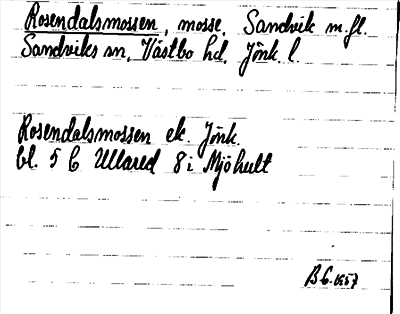 Rosendalsmossen, mosse, Sandvik m.fl.
Sandviks sn, Västbo hd. Jönk. l.
Rosendalsmossen ek. Jönk.
bl. 5 C Ullared 8 i Mjöhult
B.G. 1957